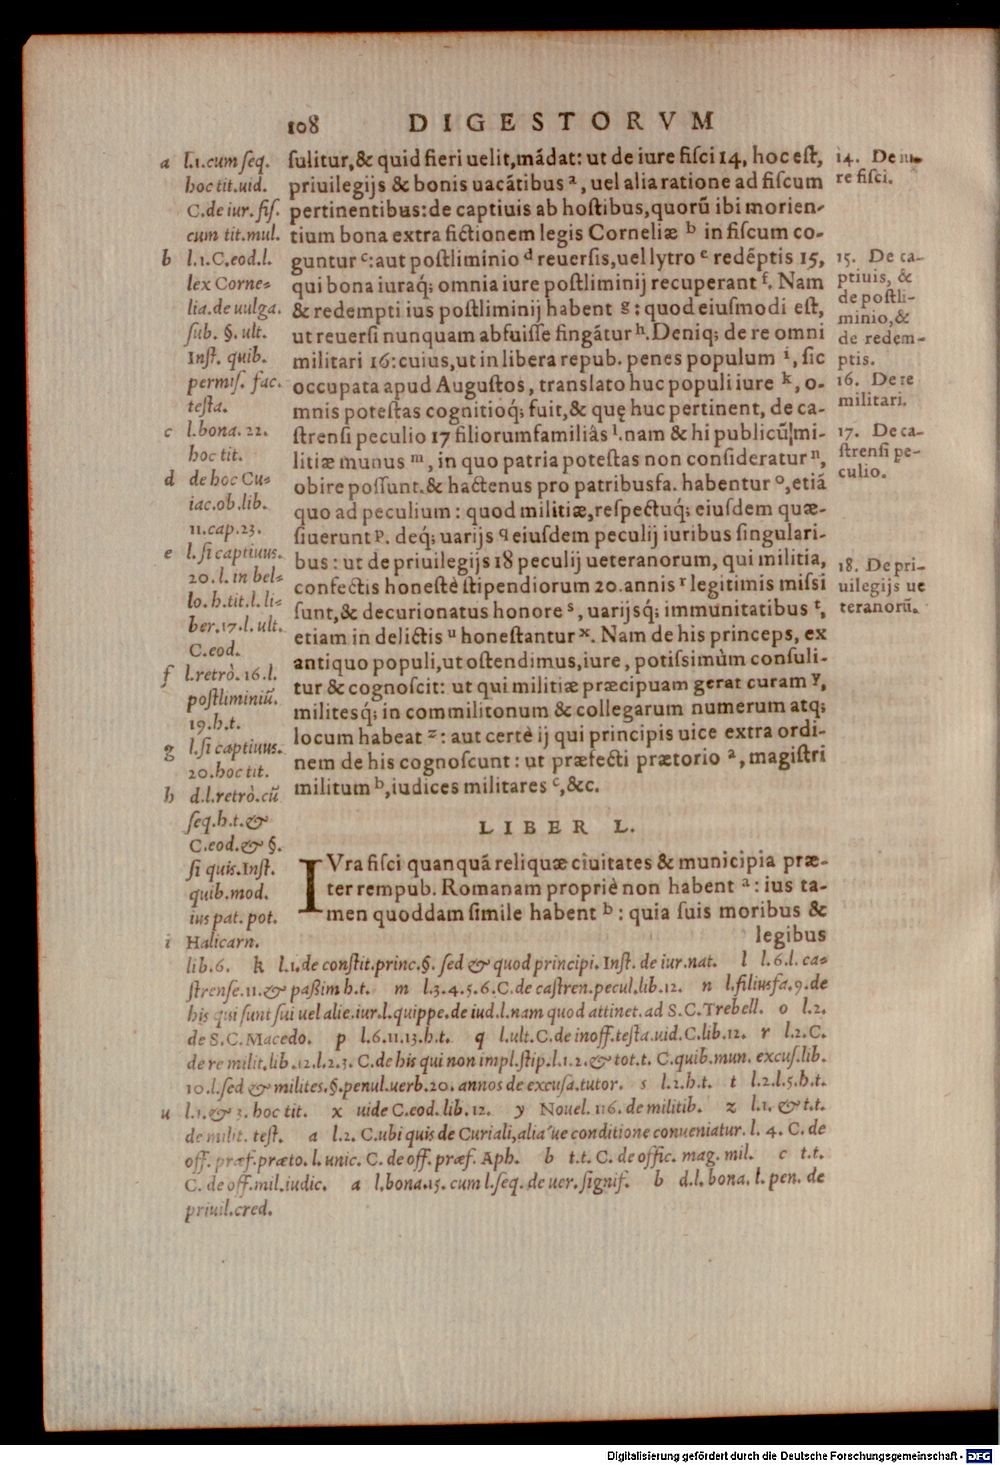 108 DIGESTORVM
sulitur,& quid fieri uelit,mādat: ut de iure fisci 14, hoc est,
priuilegijs & bonis uacātibus a, uel alia ratione ad fiscum
pertinentibus: de captiuis ab hostibus, quorū ibi morien-
tium bona extra fictionem legis Corneliæ b in fiscum co-
guntur c: aut postliminio d reuersis, uel lytro e redēptis 15,
qui bona iuraq́; omnia iure postliminij recuperant f. Nam
& redempti ius postliminij habent g: quod eiusmodi est,
ut reuersi nunquam abfuisse fingātur h. Deniq; de re omni
militari 16: cuius, ut in libera repub. penes populum i, sic
occupata apud Augustos, translato huc populi iure k, o-
mnis potestas cognitioq́; fuit, & quę huc pertinent, de ca-
strensi peculio 17 filiorumfamiliâs l. nam & hi publicū mi-
litiæ munus m, in quo patria potestas non consideratur n,
obire possunt. & hactenus pro patribusfa. habentur o, etiā
quo ad peculium: quod militiæ, respectuq́; eiusdem quæ-
siuerunt p. deq́; uarijs q eiusdem peculij iuribus singulari-
bus: ut de priuilegijs 18 peculij ueteranorum, qui militia,
confectis honestè stipendiorum 20. annis r legitimis missi
sunt, & decurionatus honore s, uarijsq́; immunitatibus t,
etiam in delictis u honestantur x. Nam de his princeps, ex
antiquo populi, ut ostendimus, iure, potissimùm consuli-
tur & cognoscit: ut qui militiæ præcipuam gerat curam y,
militesq́; in commilitonum & collegarum numerum atq;
locum habeat z: aut certè ij qui principis uice extra ordi-
nem de his cognoscunt: ut præfecti prætorio a, magistri
militum b, iudices militares c, &c.
LIBER L.
IVra fisci quanquā reliquæ ciuitates & municipia præ-
ter rempub. Romanam propriè non habent a: ius ta-
men quoddam simile habent b: quia suis moribus &
legibus
a l.1.cum seq.
hoc tit.uid.
C.de iur. fis.
cum tit.mul.
b l.1.C.eod.l.
lex Corne-
lia.de uulga.
sub. §. ult.
Inst. quib.
permis. fac.
testa.
c l.bona. 22.
hoc tit.
d de hoc Cu-
iac.ob.lib.
11.cap.23.
e l.si captiuus.
20.l.in bel-
lo.h.tit.l.li-
ber.17.l.ult.
C.eod.
f l.retrò.16.l.
postliminiū.
19.h.t.
g l.si captiuus.
20.hoc tit.
h d.l.retrò.cū
seq.h.t.&
C.eod.& §.
si quis.Inst.
quib.mod.
ius pat. pot.
i Halicarn.
lib.6. k l.1.de constit.princ.§. sed & quod principi. Inst. de iur.nat. l l.6.l.ca-
strense.11.& paßim h.t. m l.3.4.5.6.C.de castren.pecul.lib.12. n l.filiusfa.9.de
his qui sunt sui uel alie.iur.l.quippe.de iud.l.nam quod attinet.ad S.C.Trebell. o l.2.
de S.C.Macedo. p l.6.11.13.h.t. q l.ult.C.de inoff.testa.uid.C.lib.12. r l.2.C.
de re milit.lib.12.l.2.3.C.de his qui non impl.stip.l.1.2.& tot.t. C.quib.mun. excus.lib.
10.l.sed & milites.§.penul.uerb.20.annos de excusa.tutor. s l.2.h.t. t l.2.l.5.h.t.
u l.1.& 3. hoc tit. x uide C.eod.lib.12. y Nouel. 116. de militib. z l.1. & t.t.
de milit. test. a l.2. C.ubi quis de Curiali, alia ́ue conditione conueniatur. l. 4. C. de
off. præf.præto. l. unic. C. de off. præf. Aph. b t.t. C. de offic. mag. mil. c t.t.
C. de off.mil.iudic. a l.bona.15.cum l.seq. de uer. signif. b d.l. bona. l. pen. de
priuil.cred.
14. De iu-
re fisci.
15. De ca-
ptiuis, &
de postli-
minio,&
de redem-
ptis.
16. De re
militari.
17. De ca-
strensi pe-
culio.
18. De pri-
uilegijs ue
teranorū.
Digitalisierung gefördert durch die Deutsche Forschungsgemeinschaft - DFG